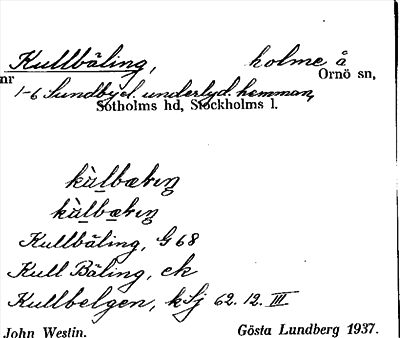 Kullbäling, holme å
nr Ornö sn,
1-6 Sundby d. underlyd. hemman,
Sotholms hd, Stockholms l.
kù̱lbæ̱tıŋ
kù̱lbæ̱tıŋ
Kullbäling, G 68
Kull Bäling, ek
Kullbelgen, kSj 62. 12. III
John Westin. Gösta Lundberg 1937.